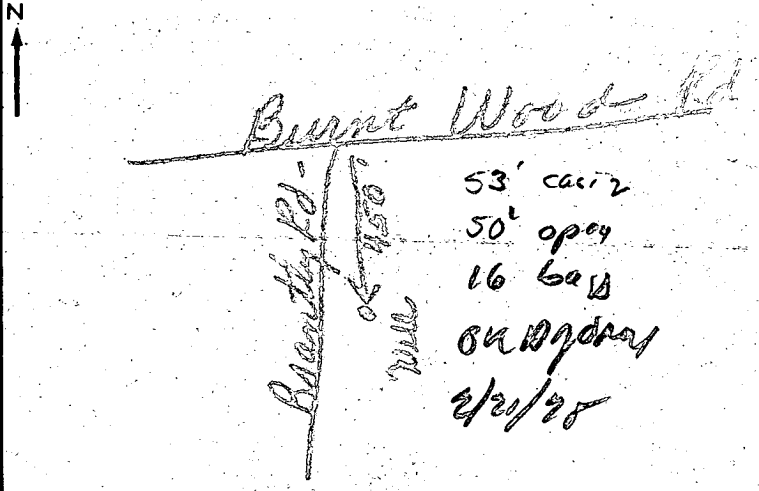 N
Burnt Wood Rd
Brantly Rd.
450'
Well
53' casing
50' open
16 bags
OK